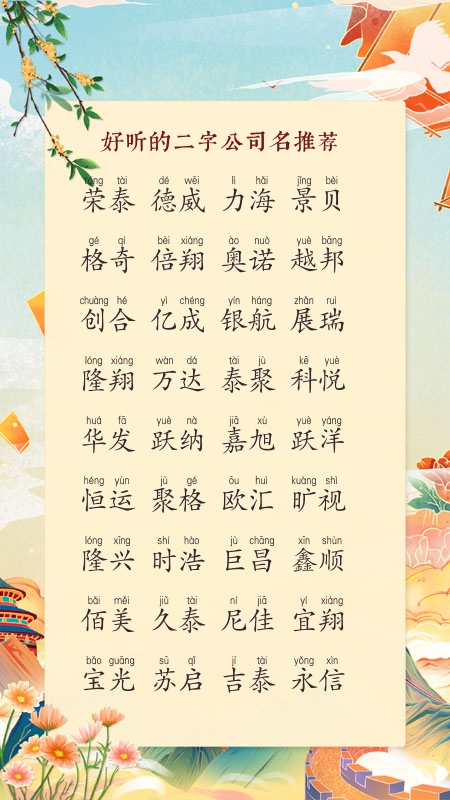 好听的二字公司名推荐
róng tài dé wēi lì hǎi jǐng bèi
荣泰 德威 力海 景贝
gé qí bèi xiáng ào nuò yuè bāng
格奇 倍翔 奥诺 越邦
chuàng hé yì chéng yín háng zhǎn ruì
创合 亿成 银航 展瑞
lóng xiáng wàn dá tài jù kē yuè
隆翔 万达 泰聚 科悦
huá fā yuè nà jiā xù yuè yáng
华发 跃纳 嘉旭 跃洋
héng yùn jù gé ōu huì kuàng shì
恒运 聚格 欧汇 旷视
lóng xīng shí hào jù chāng xīn shùn
隆兴 时浩 巨昌 鑫顺
bǎi měi jiǔ tài ní jiā yí xiáng
佰美 久泰 尼佳 宜翔
bǎo guāng sū qǐ jí tài yǒng xìn
宝光 苏启 吉泰 永信